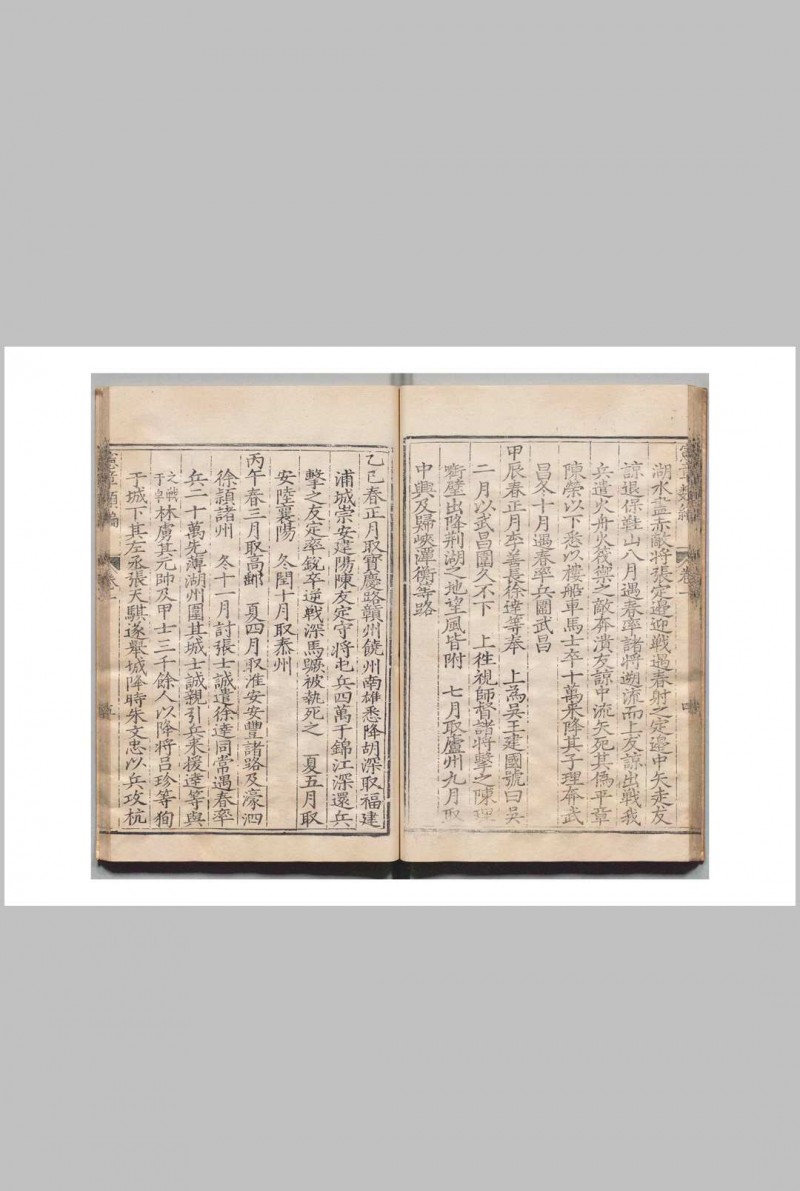 湖水盡赤敵將張定邉迎戰遇春射之定邉中矢走友
諒退保鞋山八月遇春率諸將遡流而上友諒出戰我
兵遣火舟火筏禦之敵奔潰友諒中流矢死其僞平章
陳榮以下悉以樓船軍馬士卒十萬來降其子理奔武
昌冬十月遇春率兵圍武昌
甲辰春正月李善長徐達等奉　上爲吳王建國號曰吳
二月以武昌圍久不下　上徃視師督諸將擊之陳理
銜璧出降荆湖之地望風皆附　七月取廬州九月取
中興及歸峽潭衡等路
乙巳春正月取寶慶路贛州饒州南雄悉降胡深取福建
浦城崇安建陽陳友定守將屯兵四萬于錦江深還兵
擊之友定率銳卒逆戰深馬蹶被執死之　夏五月取
安陸襄陽　冬閏十月取泰州
丙午春三月取高郵　夏四月取淮安安豐諸路及濠泗
徐潁諸州　冬十一月討張士誠遣徐達同常遇春率
兵二十萬先薄湖州圍其城士誠親引兵來援達等與
之戰于皂林虜其元帥及甲士三千餘人以降將呂珍等狥
于城下其左丞張天騏遂舉城降時朱文忠以兵攻杭
憲章類編
卷一